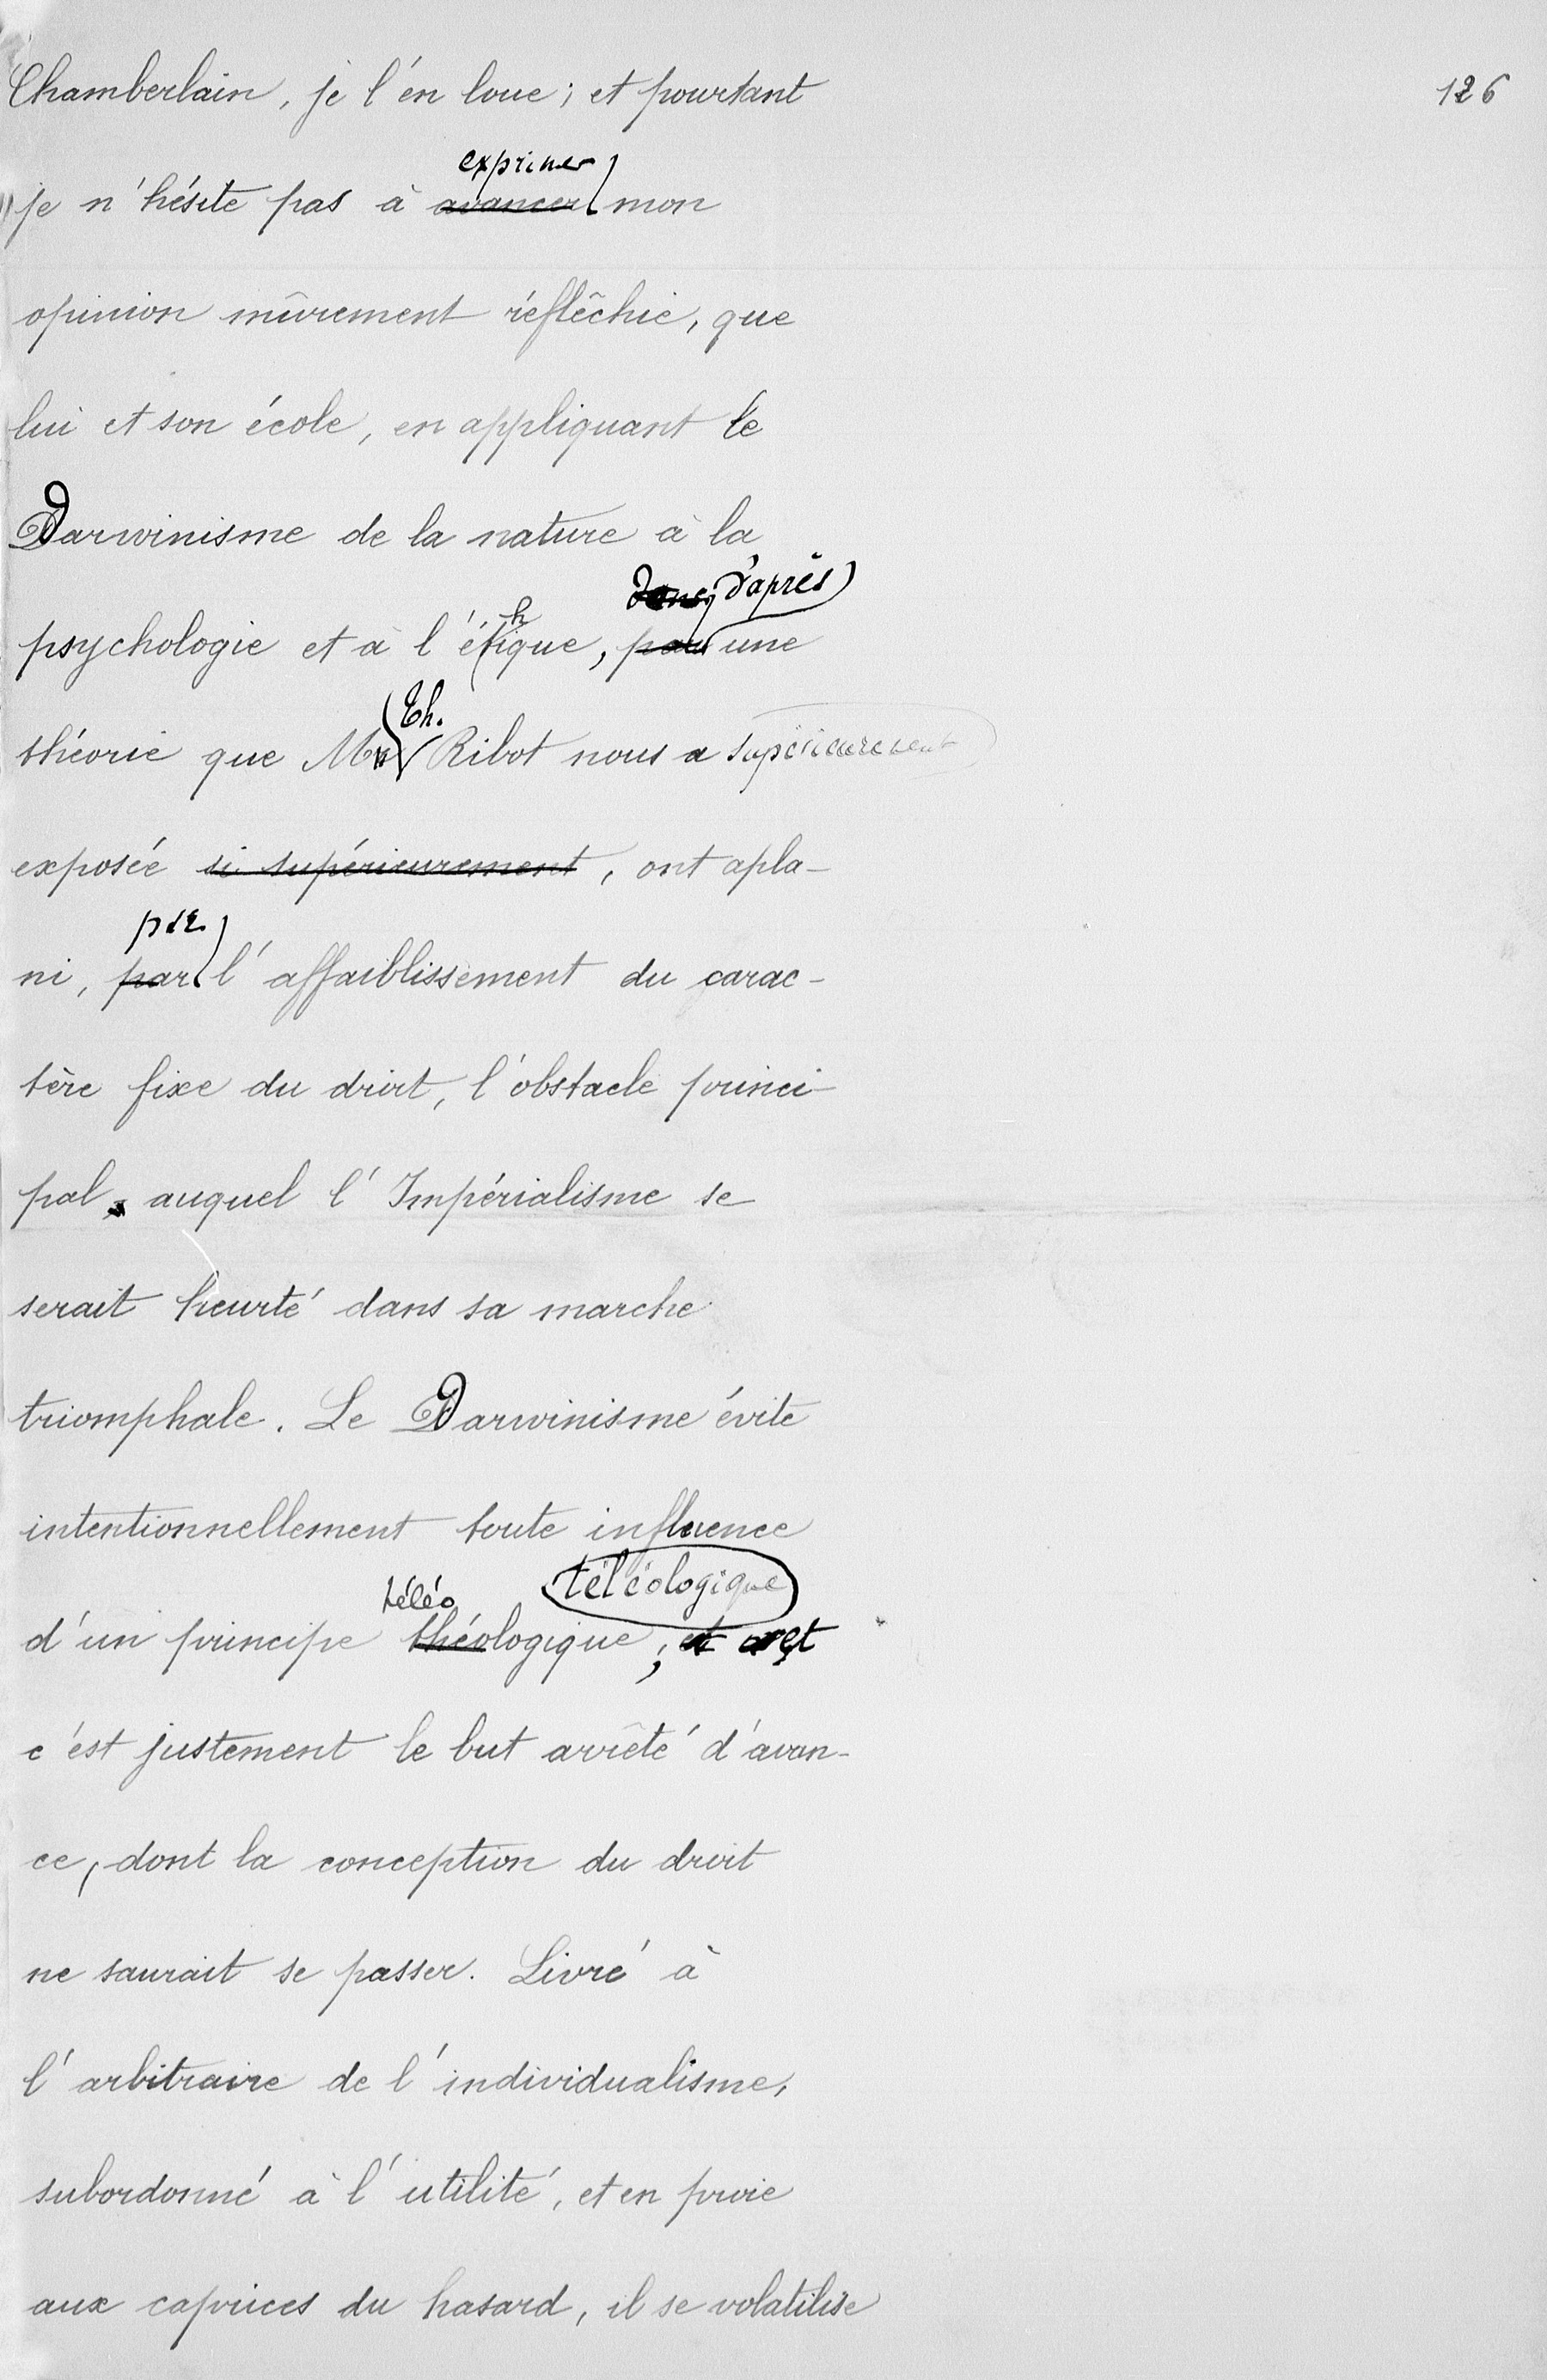 Chamberlain, je l'en loue; et pourtant
126
exprimer
je n'hésite pas à avancer mon
opinion mûrement réflêchie, que
lui et son école, en appliquant le
Darwinisme de la nature à la
d'après
psychologie et à l'éthique, par une
Th.
théorie que Mr Ribot nous a supérieurement
exposée si supérieurement, ont apla-
par
ni, par l'affaiblissement du carac-
tère fixe du droit, l'obstacle princi-
pal auquel l'Impérialisme se
serait heurté dans sa marche
triomphale. Le Darwinisme évite
intentionnellement toute influence
téléo téléologique
d'un principe théologique; et et
c'est justement le but arrêté d'avan-
ce, dont la conception du droit
ne saurait se passer. Livré à
l'arbitraire de l'individualisme,
subordonné à l'utilité, et en proie
aux caprices du hasard, il se volatilise